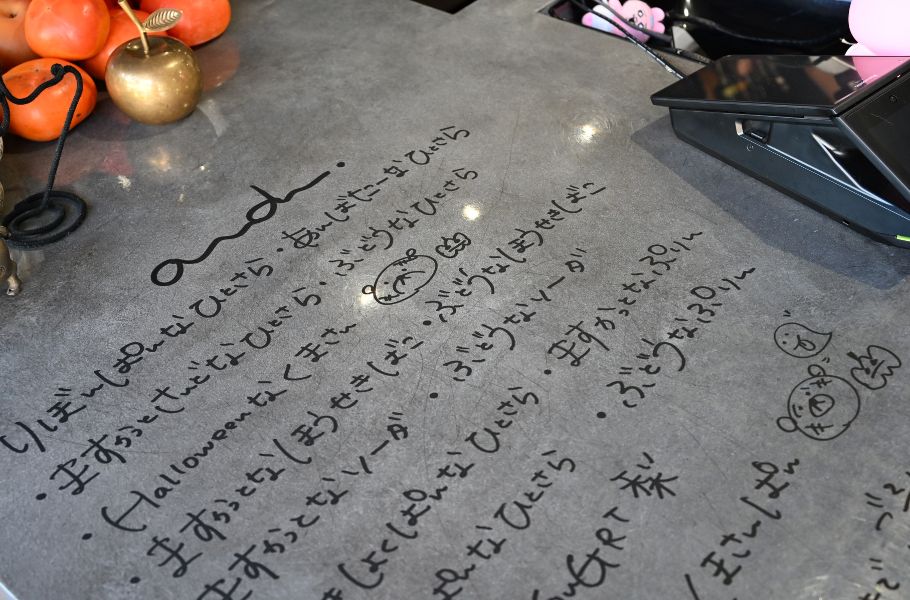 and.
りぼんぱんなひとさら ・あんばたーなひとさら
・ますかっとさんどなひとさら ・ぶどうなひとさら
・Halloweenなくまさん
・ますかっとなほうせきばこ ・ぶどうなほうせきばこ
ますかっとなソーダ ・ぶどうなソーダ
しょくぱんなひとさら ・ますかっとなぷりん
なひとさら ・ぶどうなぷりん
梨
くまさんぱん